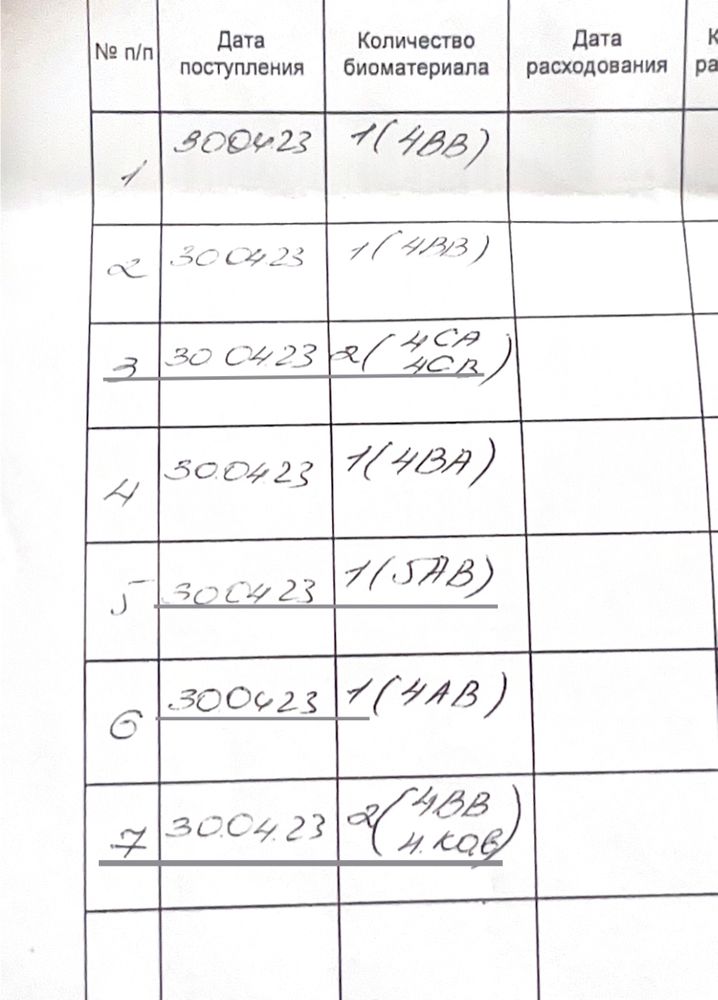 № п/п
Дата поступления
Количество биоматериала
Дата расходования
1 300423 1(4BB)
2 300423 1(4BB)
3 30 0423 2(4CA
4CB)
4 30.0423 1(4BA)
5 300423 1(5AB)
6 30.0423 1(4AB)
7 30.04.23 2(4BB
4.кав)